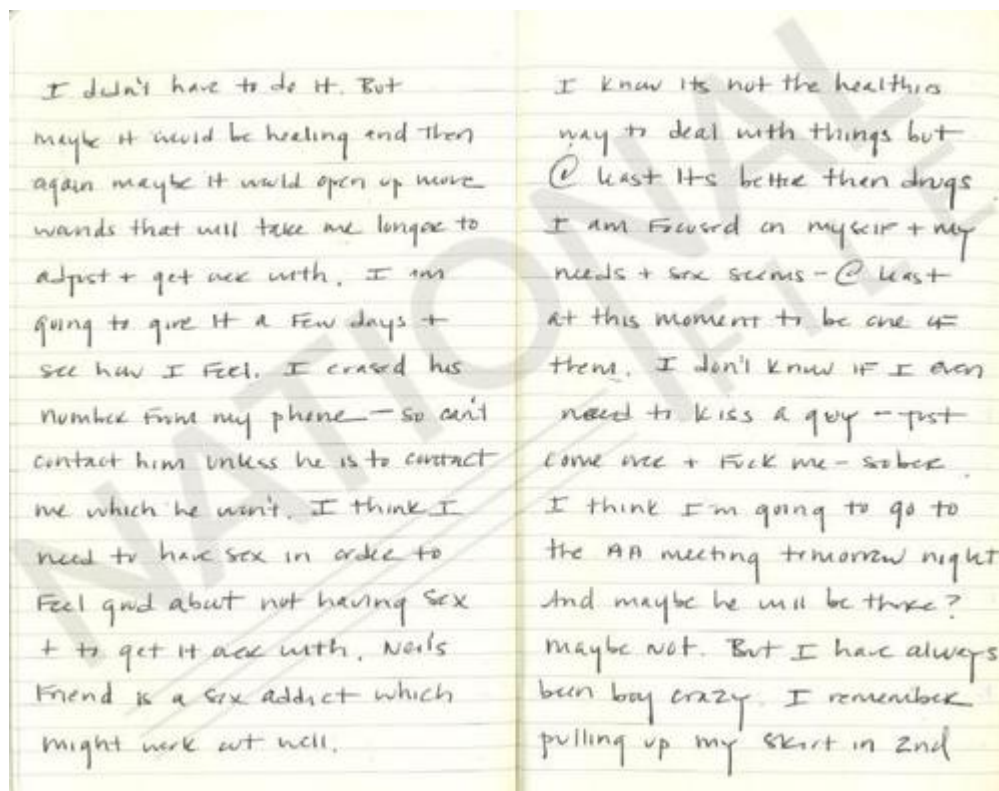 I didn't have to do it. But
maybe it would be healing and then
again maybe it would open up more
wands that will take me longer to
adjust + get over with. I am
going to give it a Few days +
see how I Feel. I erased his
number From my phone - so can't
contact him unless he is to contact
me which he won't. I think I
need to have sex in order to
Feel good about not having sex
+ to get it over with. Neil's
Friend is a sex addict which
might work out well.
I know its not the healthies
way to deal with things but
@ least its better then drugs.
I am Focused on myself + my
needs + sex seems - @ least
at this moment to be one of
them. I don't know if I even
need to kiss a guy - just
come over + Fuck me - sober.
I think I'm going to go to
the AA meeting tomorrow night
And maybe he will be there?
maybe not. But I have always
been boy crazy. I remember
pulling up my skirt in 2nd
NATIONAL
FILE